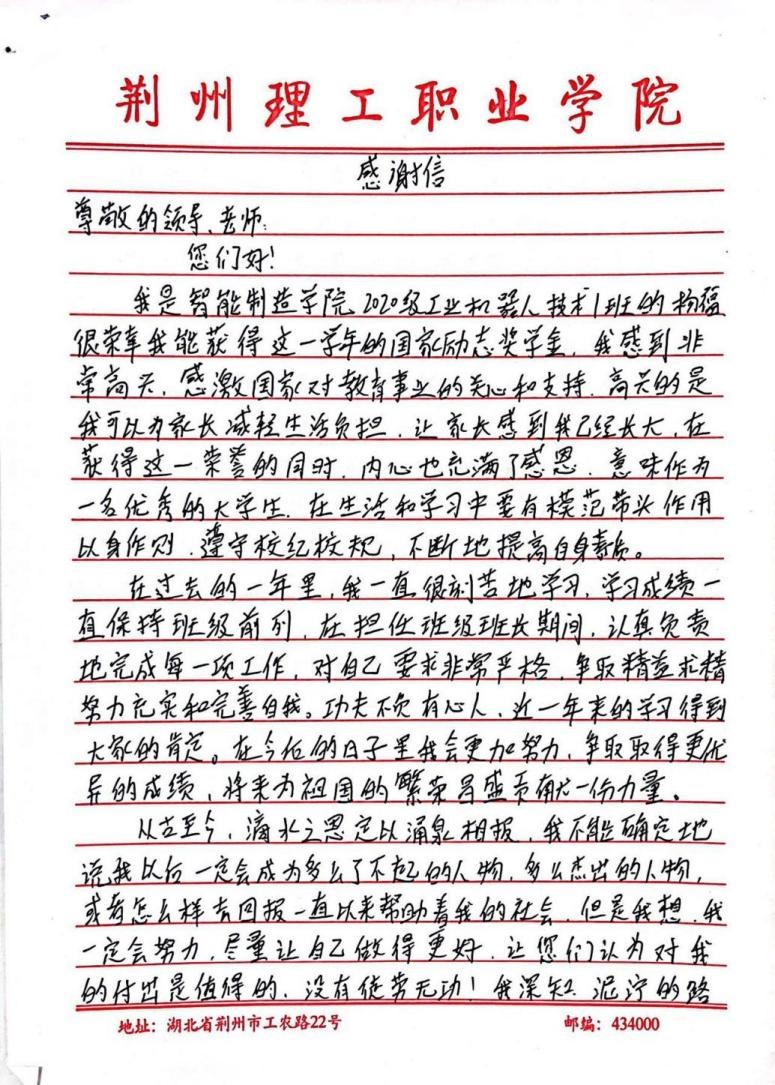 荆州理工职业学院
感谢信
尊敬的领导、老师:
您们好!
我是智能制造学院2020级工业机器人技术1班的杨福
很荣幸我能获得这一学年的国家励志奖学金,我感到非
常高兴,感激国家对教育事业的关心和支持.高兴的是
我可以为家长减轻生活负担,让家长感到我已经长大,在
获得这一荣誉的同时,内心也充满了感恩.意味作为
一名优秀的大学生.在生活和学习中要有模范带头作用
以身作则.遵守校纪校规,不断地提高自身素质。
在过去的一年里,我一直很刻苦地学习,学习成绩一
直保持班级前列,在担任班级班长期间,认真负责
地完成每一项工作,对自己要求非常严格,争取精益求精
努力充实和完善自我。功夫不负有心人,近一年来的学习得到
大家的肯定。在今后的日子里我会更加努力,争取取得更优
异的成绩,将来为祖国的繁荣昌盛贡献一份力量。
从古至今,滴水之恩定以涌泉相报,我不能确定地
说我以后一定会成为多么了不起的人物,多么杰出的人物,
或者怎么样去回报一直以来帮助着我的社会.但是我想,我
一定会努力,尽量让自己做得更好.让您们认为对我
的付出是值得的,没有徒劳无功!我深知泥泞的路
地址:湖北省荆州市工农路22号 邮编:434000